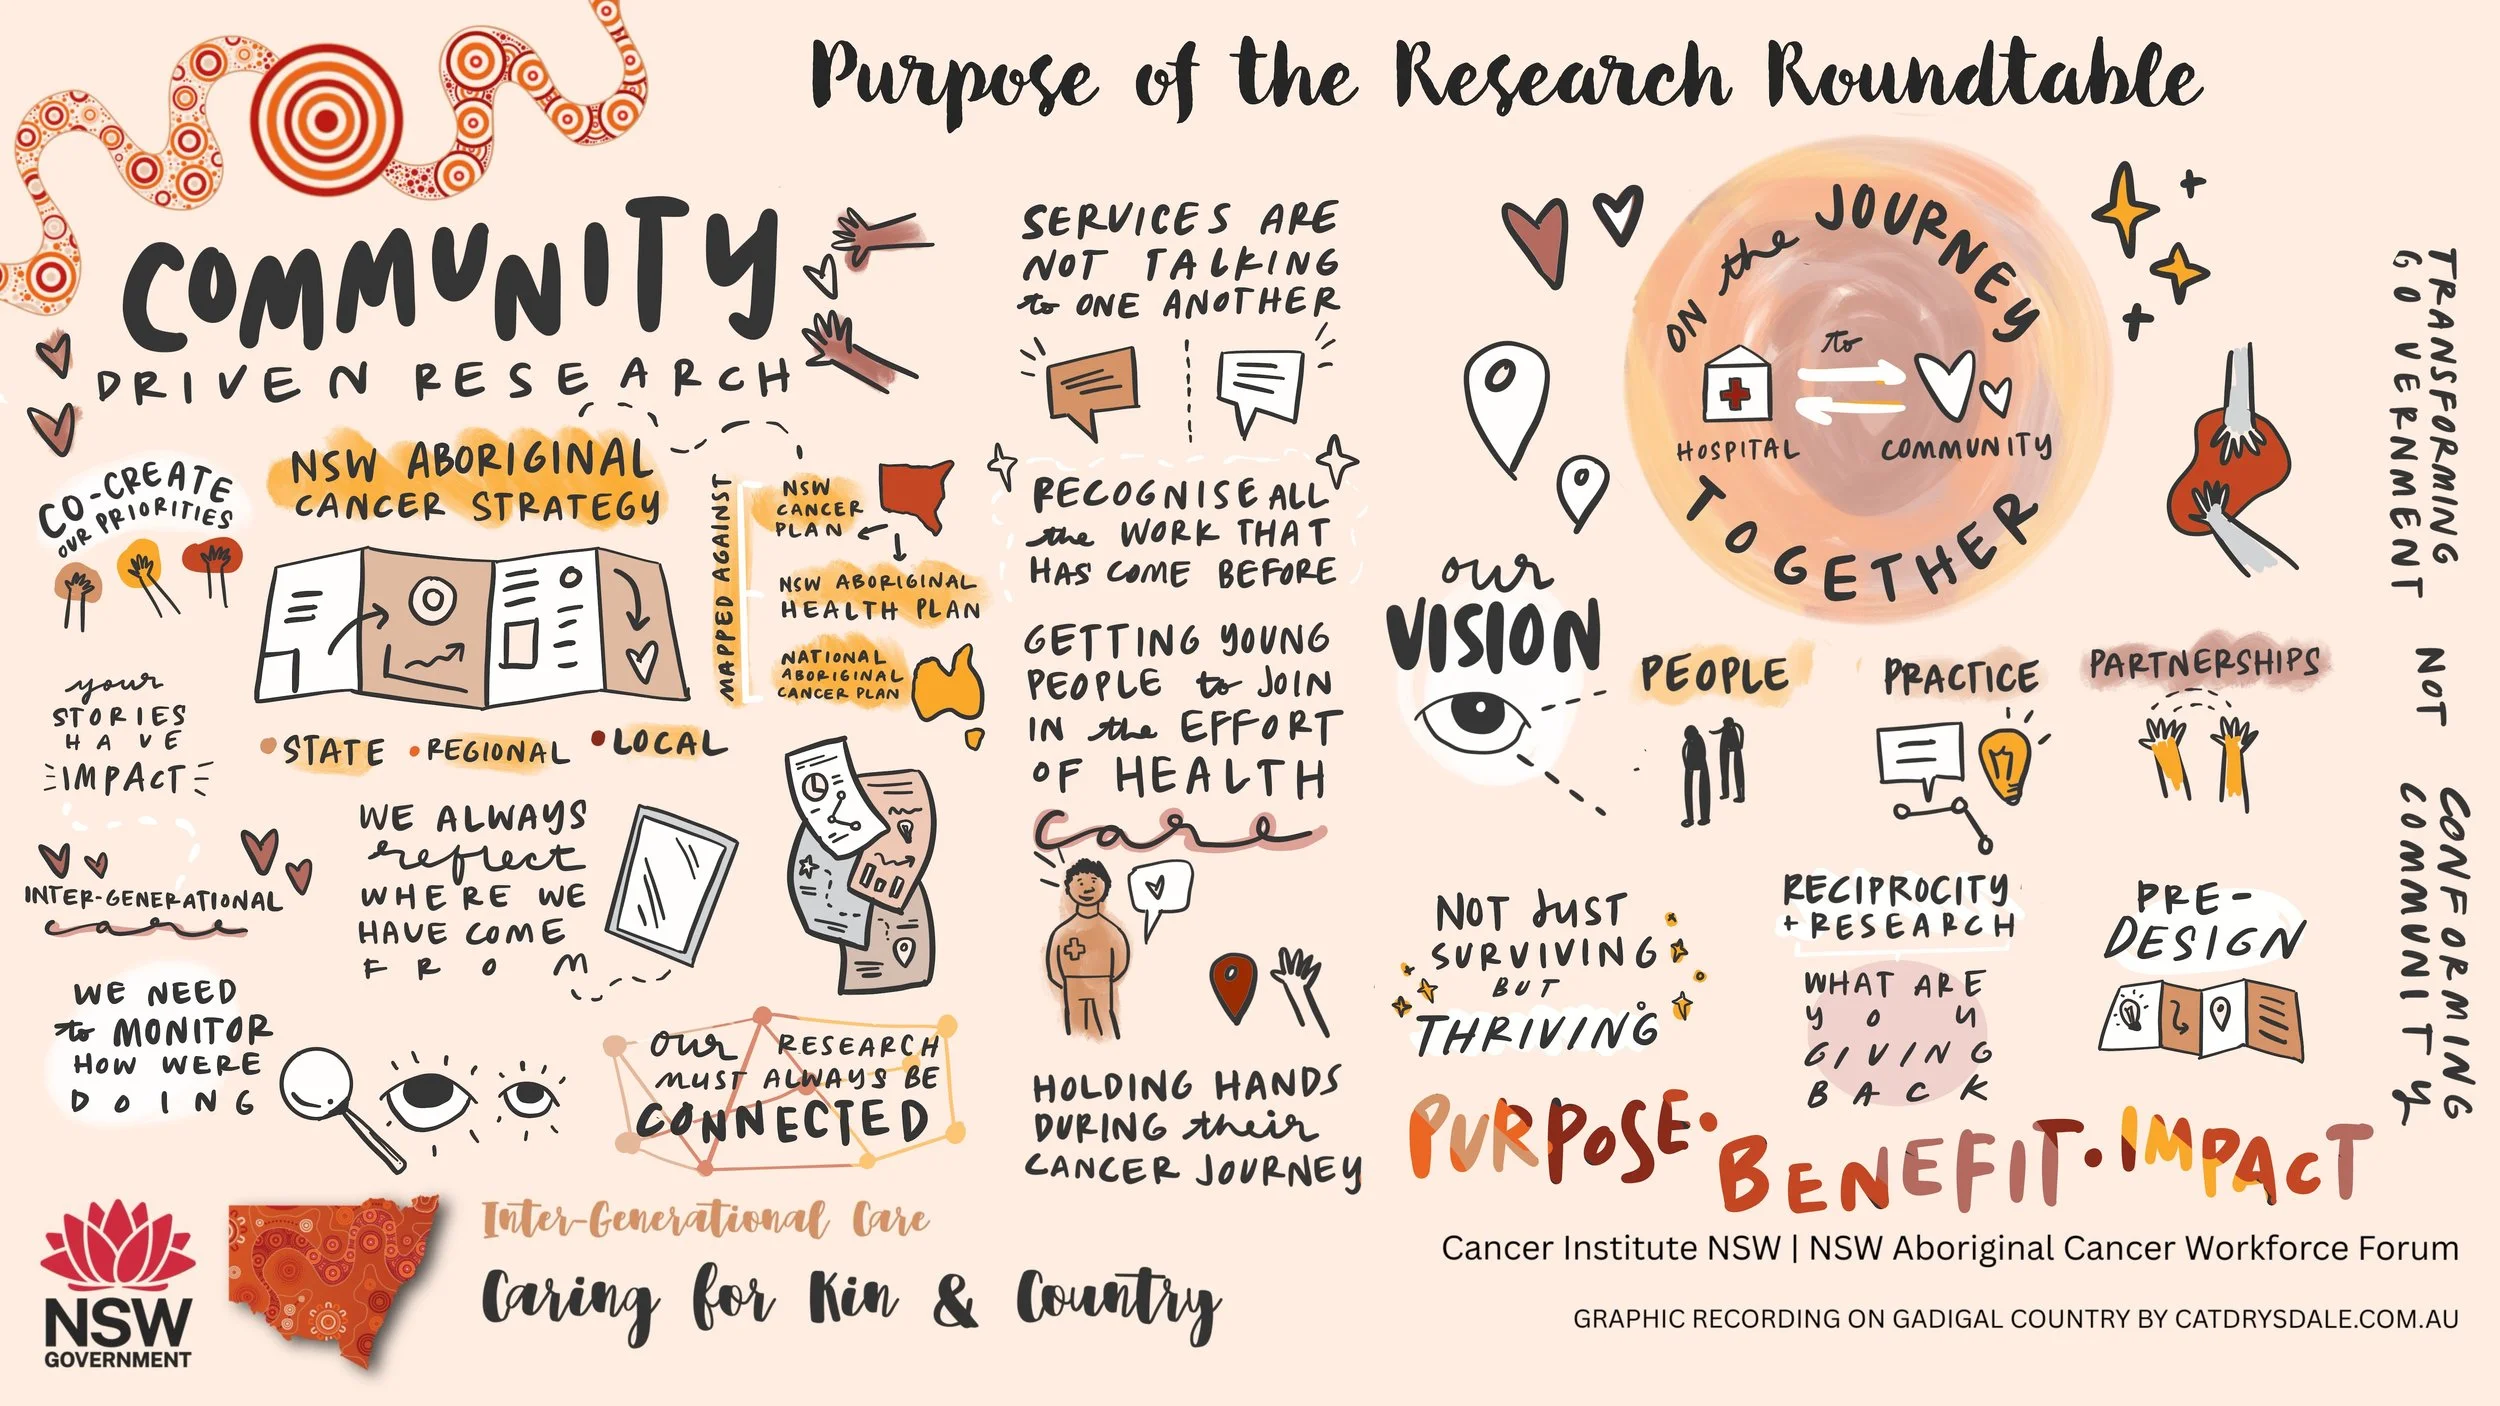 Purpose of the Research Roundtable
COMMUNITY
DRIVEN RESEARCH
CO-CREATE
OUR PRIORITIES
NSW ABORIGINAL
CANCER STRATEGY
MAPPED AGAINST
NSW
CANCER
PLAN
NSW ABORIGINAL
HEALTH PLAN
NATIONAL
ABORIGINAL
CANCER PLAN
• STATE • REGIONAL • LOCAL
your
STORIES
HAVE
IMPACT
INTER-GENERATIONAL
care
WE ALWAYS
reflect
WHERE WE
HAVE COME
FROM
WE NEED
to MONITOR
HOW WERE
DOING
OUR RESEARCH
MUST ALWAYS BE
CONNECTED
SERVICES ARE
NOT TALKING
to ONE ANOTHER
RECOGNISE ALL
the WORK THAT
HAS COME BEFORE
GETTING YOUNG
PEOPLE to JOIN
IN the EFFORT
OF HEALTH
care
HOLDING HANDS
DURING their
CANCER JOURNEY
ON the JOURNEY
to
HOSPITAL
COMMUNITY
TOGETHER
our
VISION
PEOPLE
PRACTICE
PARTNERSHIPS
NOT JUST
SURVIVING
BUT
THRIVING
RECIPROCITY
+ RESEARCH
WHAT ARE
YOU
GIVING
BACK
PRE-
DESIGN
TRANSFORMING
GOVERNMENT
NOT
CONFORMING
COMMUNITY
PURPOSE • BENEFIT • IMPACT
NSW
GOVERNMENT
Inter-Generational Care
Caring for Kin & Country
Cancer Institute NSW | NSW Aboriginal Cancer Workforce Forum
GRAPHIC RECORDING ON GADIGAL COUNTRY BY CATDRYSDALE.COM.AU